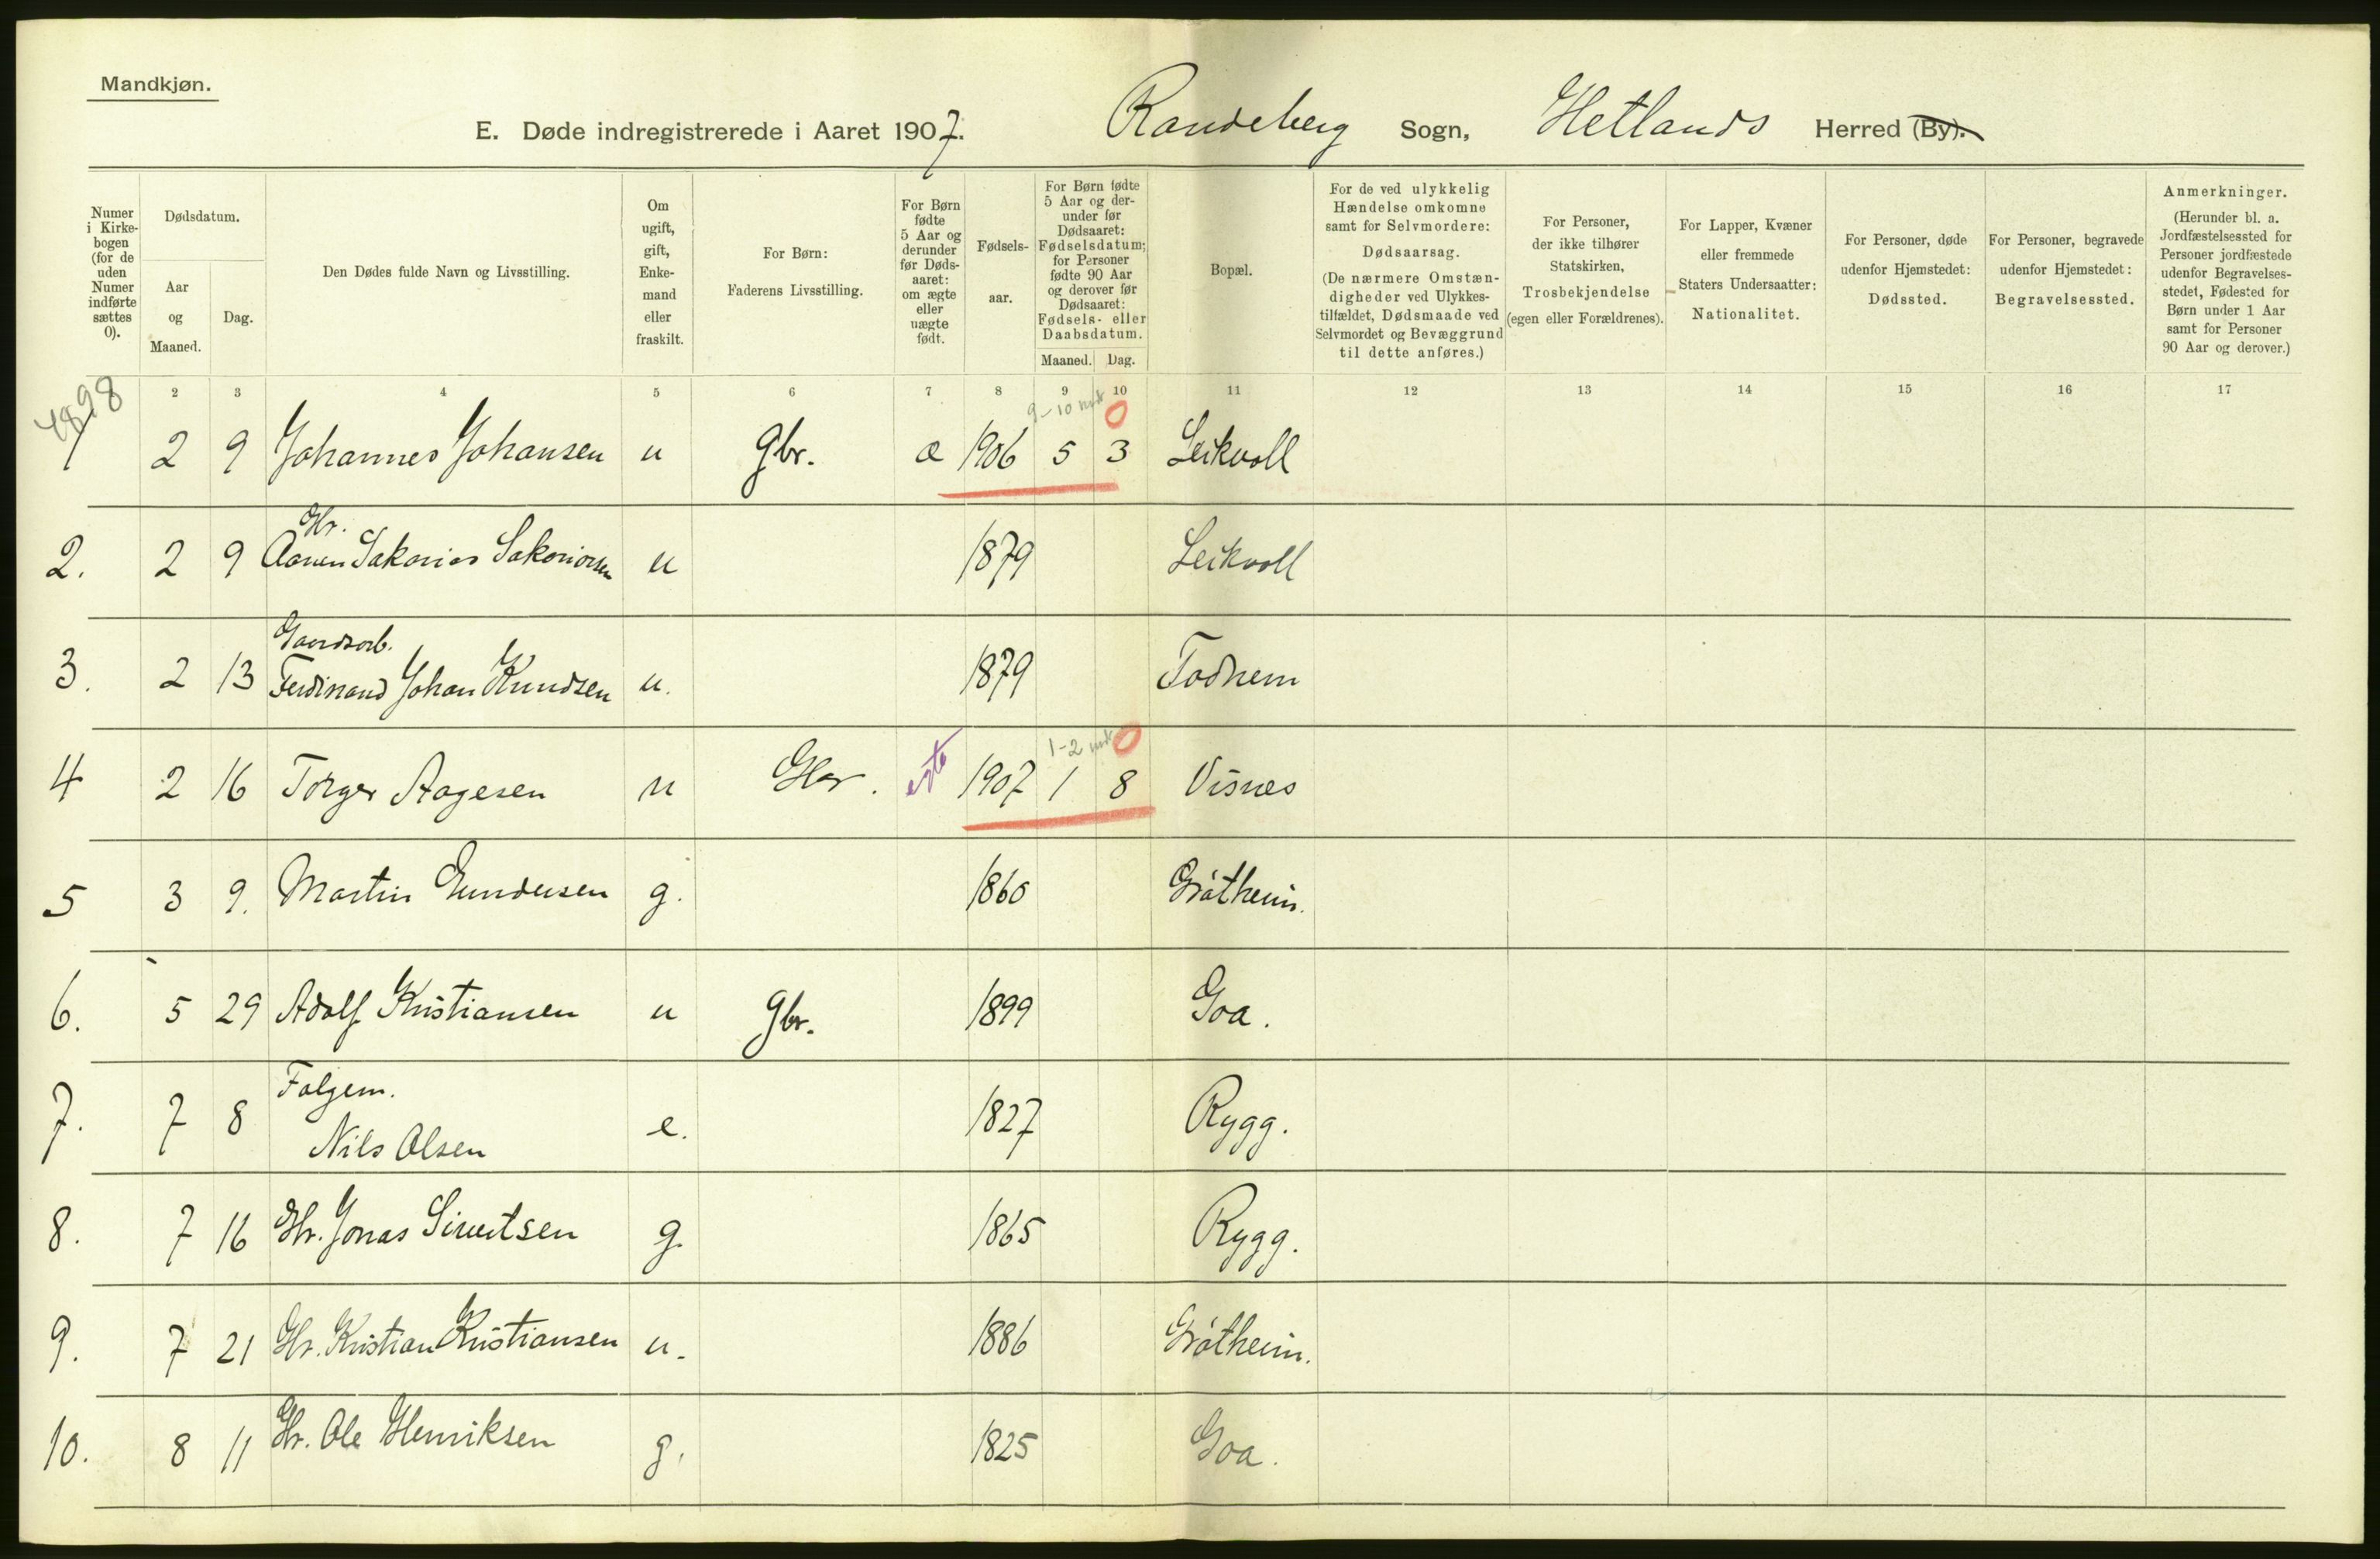 Mandkjøn.
E. Døde indregistrerede i Aaret 1907. Randeberg Sogn, Hetlands Herred (By).
Numer i Kirkebogen (for de uden Numer indførte sættes 0).
Dødsdatum.
Aar og Maaned.
Dag.
Den Dødes fulde Navn og Livsstilling.
Om ugift, gift, Enkemand eller fraskilt.
For Børn: Faderens Livsstilling.
For Børn fødte 5 Aar og derunder før Dødsaaret: om ægte eller uægte født.
Fødselsaar.
For Børn fødte 5 Aar og derunder før Dødsaaret: Fødselsdatum; for Personer fødte 90 Aar og derover før Dødsaaret: Fødsels- eller Daabsdatum.
Maaned. Dag.
Bopæl.
For de ved ulykkelig Hændelse omkomne samt for Selvmordere: Dødsaarsag. (De nærmere Omstændigheder ved Ulykkestilfældet, Dødsmaade ved Selvmordet og Bevæggrund til dette anføres.)
For Personer, der ikke tilhører Statskirken, Trosbekjendelse (egen eller Forældrenes).
For Lapper, Kvæner eller fremmede Staters Undersaatter: Nationalitet.
For Personer, døde udenfor Hjemstedet: Dødssted.
For Personer, begravede udenfor Hjemstedet: Begravelsessted.
Anmerkninger. (Herunder bl. a. Jordfæstelsessted for Personer jordfæstede udenfor Begravelsesstedet, Fødested for Børn under 1 Aar samt for Personer 90 Aar og derover.)
2 3 4 5 6 7 8 9 10 11 12 13 14 15 16 17
4898
9-10 mdr 0
1 2 9 Johannes Johansen u gbr. æ 1906 5 3 Leikvoll
Gbr.
2. 2 9 Aanen Sakarias Sakariasen u 1879 Leikvoll
Gaardsarb.
3. 2 13 Ferdinand Johan Knudsen u. 1879 Todnem
1-2 mdr 0
4 2 16 Torger Aagesen u Gbr. egte 1907 1 8 Visnes
5 3 9. Martin Gundersen g. 1860 Grötheim.
6. 5 29 Adolf Kristiansen u gbr. 1899 Goa.
Folgem.
7. 7 8 Nils Olsen e. 1827 Rygg.
8. 7 16 Gbr. Jonas Sivertsen g. 1865 Rygg.
9. 7 21 Gbr. Kristian Kristiansen u. 1886 Grötheim.
10. 8 11 Gbr. Ole Henriksen g. 1825 Goa.